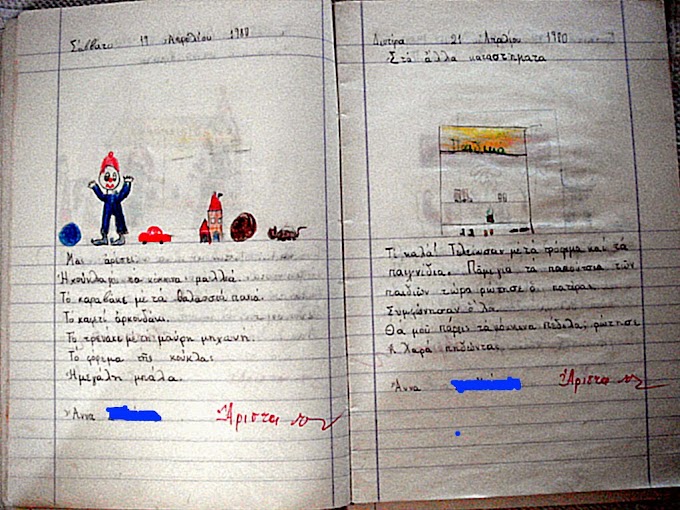 Σάββατο 19 Απριλίου 1980
Μας άρεσει
Η κούκλα με τα κόκκινα μαλλιά.
Το καραβάκι με τα θαλασσιά πανιά.
Το καφετί αρκουδάκι.
Το τρενάκι με τη μαύρη μηχανή.
Το φόρεμα της κούκλας
Η μεγάλη μπάλα.
Άννα
Άριστα
Δευτέρα 21 Απρίλιου 1980
Στα άλλα καταστήματα
Παιδικα
Τι καλά! Τελείωσαν με τά φόρεμα και τά
παιγνίδια. Πάμε για τα παπούτσια τών
παιδιών τώρα ρώτησε ό πατέρας
Συμφώνησαν όλα.
Θα μού πάρεις τα κόκκινα πέδιλα; ρώτησε
η Χαρά πηδώντας.
Άννα
Άριστα